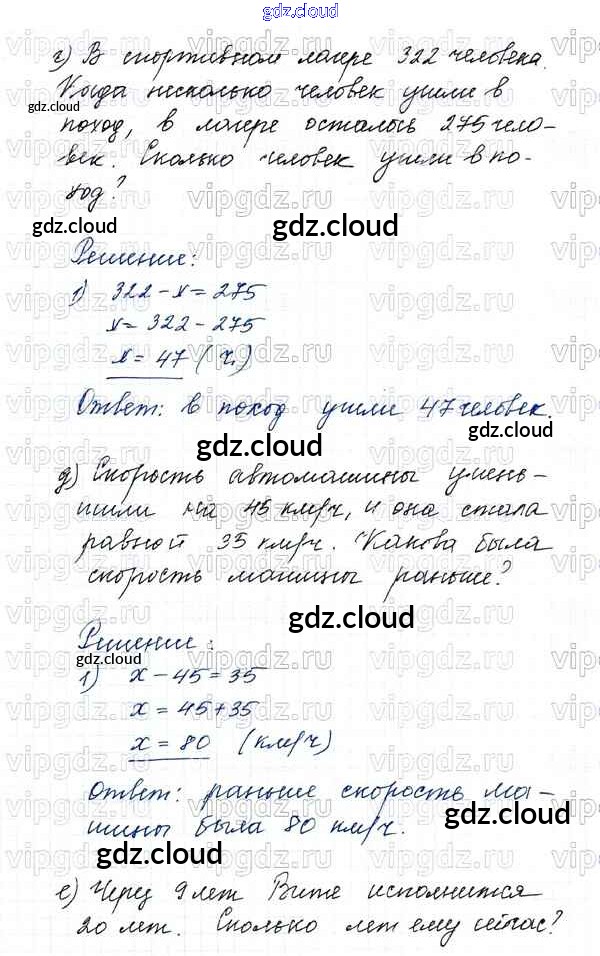 gdz.cloud
г) В спортивном лагере 322 человека.
Когда несколько человек ушли в
поход, в лагере осталось 275 чело-
век. Сколько человек ушли в по-
ход?
Решение:
1) 322 - x = 275
x = 322 - 275
x = 47 (ч.)
Ответ: в поход ушли 47 человек.
д) Скорость автомашины умень-
шили на 45 км/ч, и она стала
равной 35 км/ч. Какова была
скорость машины раньше?
Решение:
1) x - 45 = 35
x = 45 + 35
x = 80 (км/ч)
Ответ: раньше скорость ма-
шины была 80 км/ч.
е) Через 9 лет Вите исполнится
20 лет. Сколько лет ему сейчас?